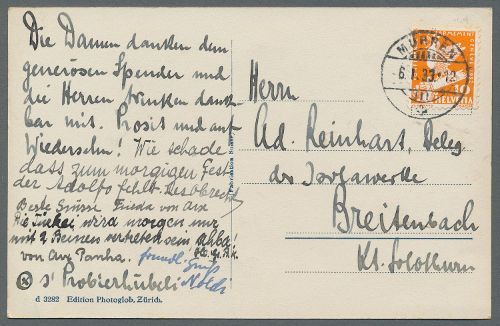 Die Damen danken dem
generösen Spender und
die Herren trinken dank-
bar mit. Prosit und auf
Wiedersehn! Wie schade
dass zum morgigen Fest
der Adolfo fehlt.
Beste Grüsse Frieda von Arx
Die Türkei wird morgen nur
mit 2 Beinen vertreten sein
von Arx freundl. Gruss
s' Probierhübeli
d 3282 Edition Photoglob, Zürich.
MÜRREN
HELVETIA
10
Herrn
Ad. Reinhart, Deleg
der Isolawerke
Breitenbach
Kt. Solothurn